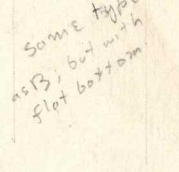 some type
as B, but with
flat bottom.